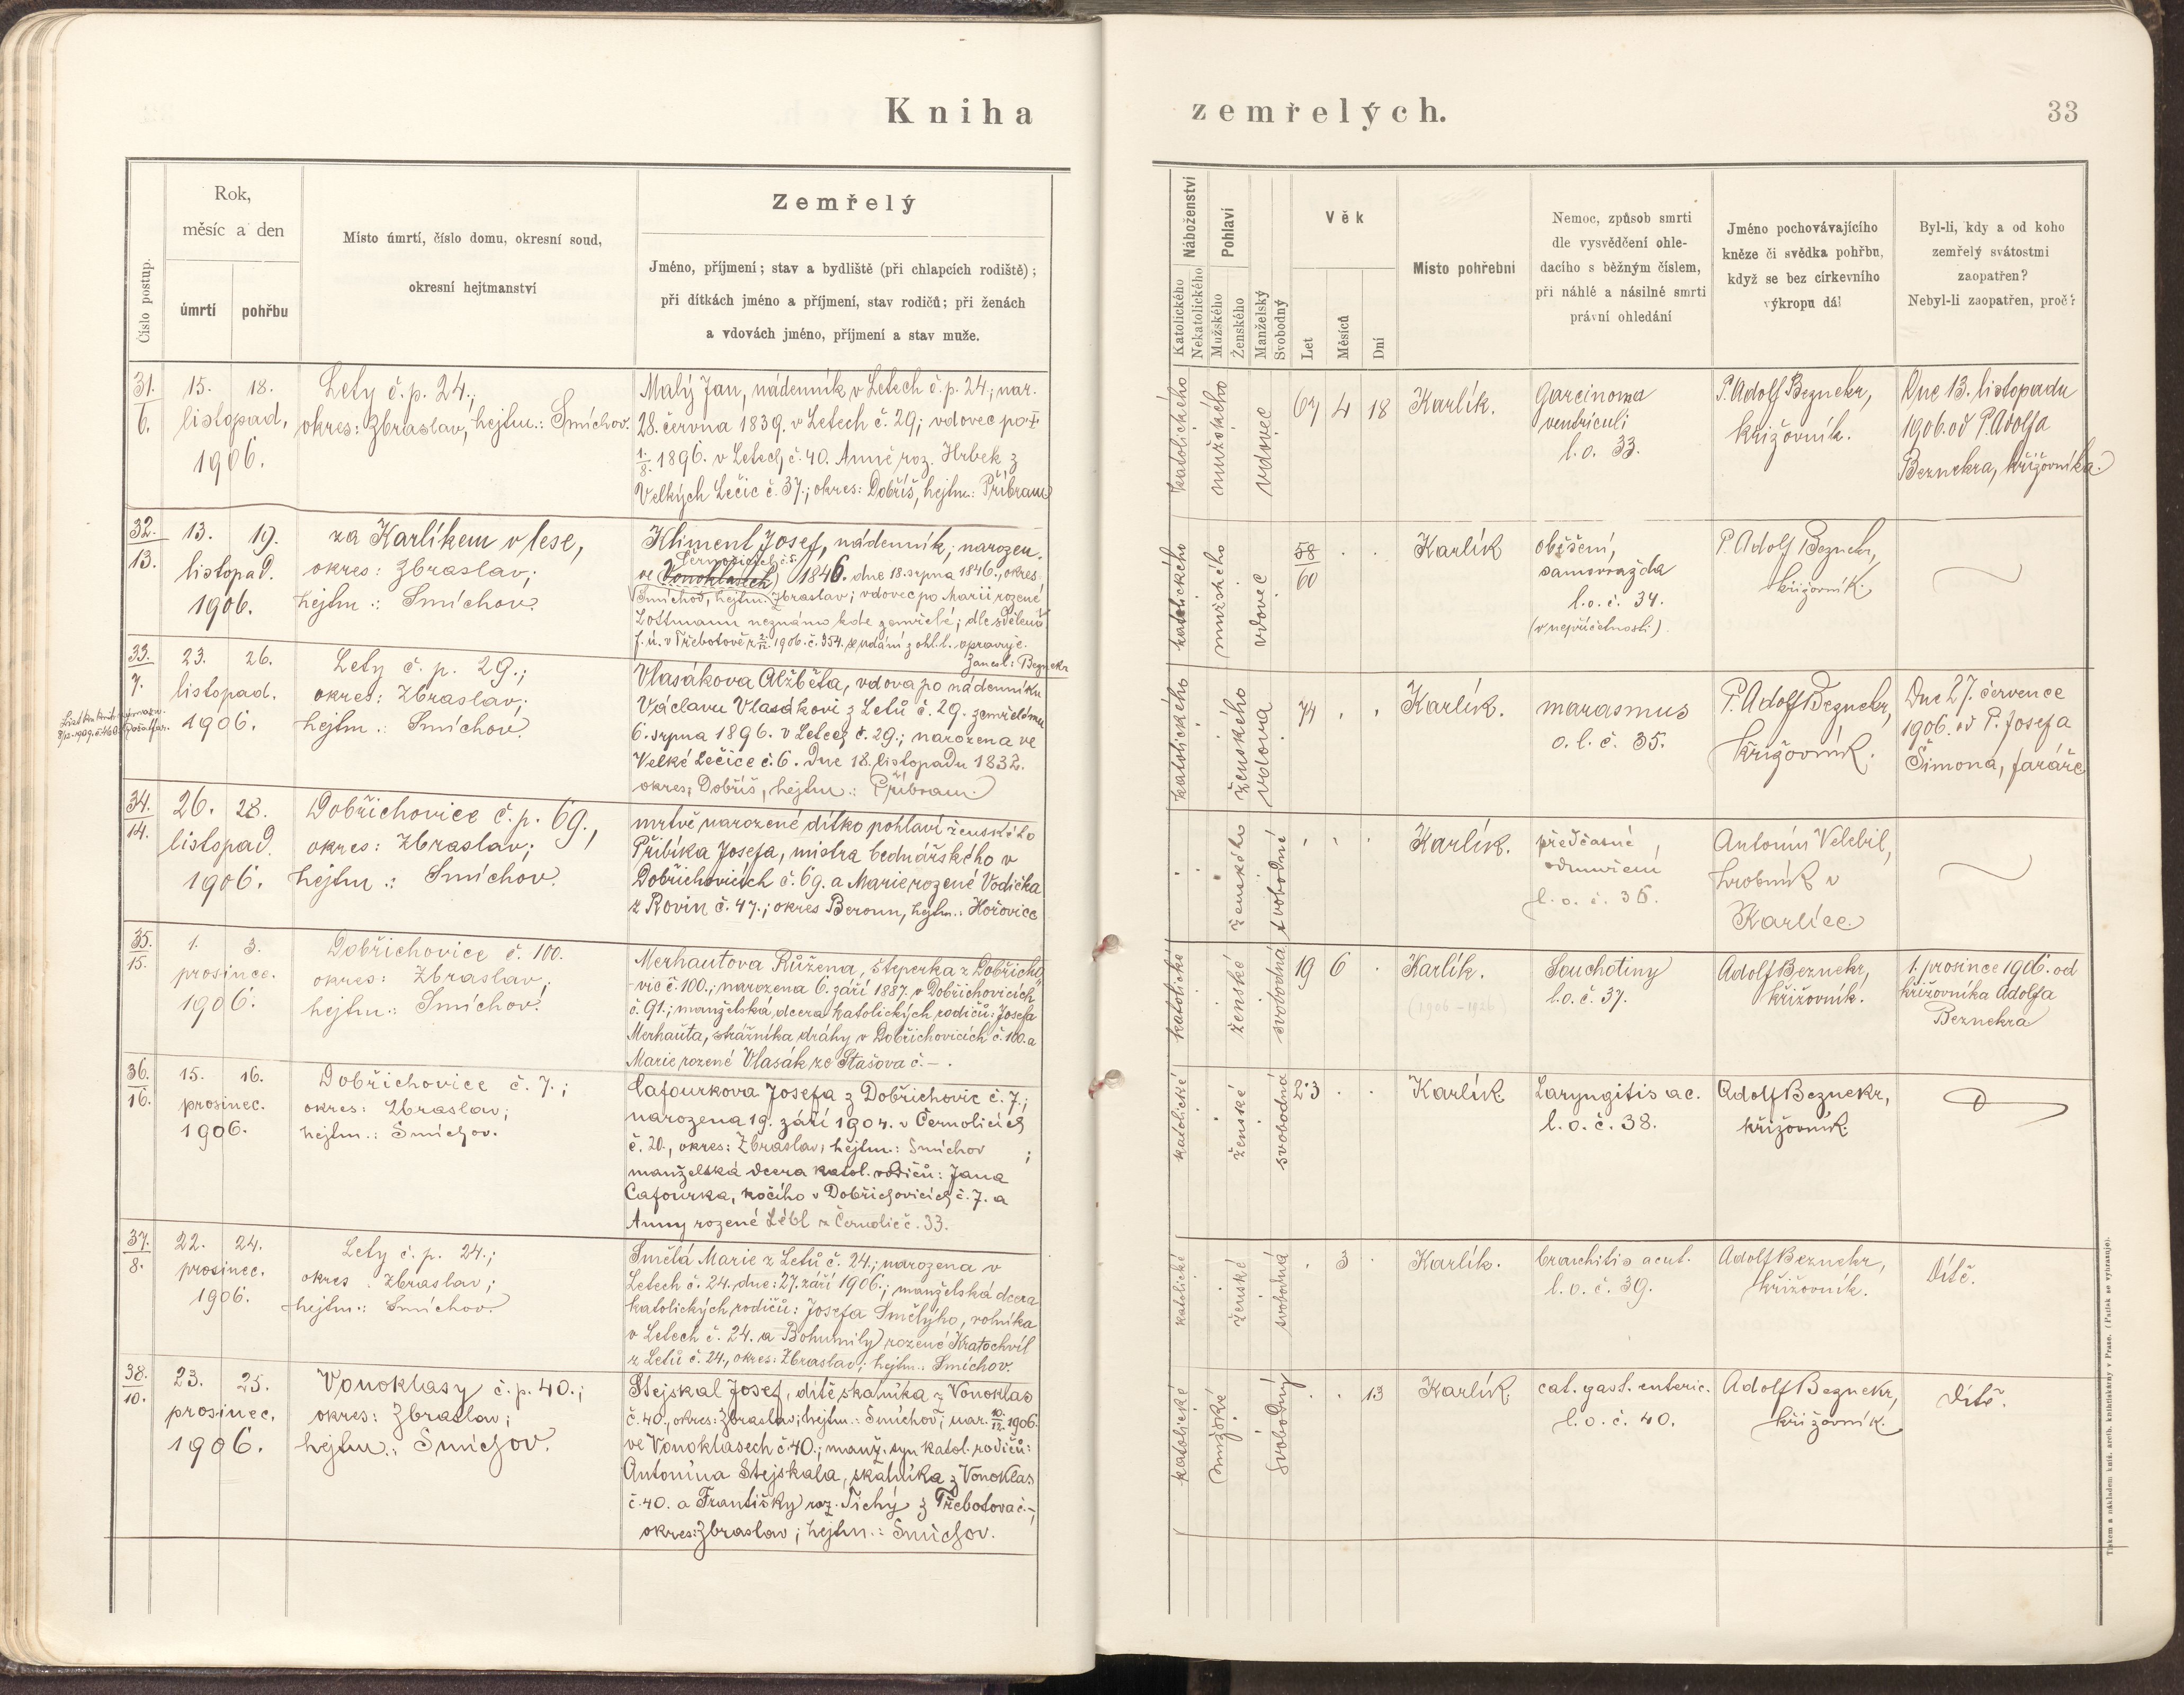 Kniha zemřelých.
33
Číslo postup.
Rok,
měsíc a den
úmrtí
pohřbu
Místo úmrtí, číslo domu, okresní soud,
okresní hejtmanství
Zemřelý
Jméno, příjmení; stav a bydliště (při chlapcích rodiště);
při dítkách jméno a příjmení, stav rodičů; při ženách
a vdovách jméno, příjmení a stav muže.
Náboženství
Katolického
Nekatolického
Pohlaví
Mužského
Ženského
Manželský
Svobodný
Věk
Let
Měsíců
Dní
Místo pohřební
Nemoc, způsob smrti
dle vysvědčení ohle-
dacího s běžným číslem,
při náhlé a násilné smrti
právní ohledání
Jméno pochovávajícího
kněze či svědka pohřbu,
když se bez církevního
výkropu dál
Byl-li, kdy a od koho
zemřelý svátostmi
zaopatřen?
Nebyl-li zaopatřen, proč?
31.
6.
15. 18.
listopad,
1906.
Lety č.p. 24.;
okres: Zbraslav, hejtm.: Smíchov.
Malý Jan, nádenník v Letech č.p. 24; nar.
28. června 1839. v Letech č. 29; vdovec po I
1./8. 1896. v Letech č. 40. Anně roz. Hrbek z
Velkých Lečic č. 37.; okres: Dobříš, hejtm.: Příbram
katolického
mužského
vdovec
67 4 18
Karlík.
Carcinoma
vendriculi
l.o. 33.
P. Adolf Beznekr,
křižovník.
Dne 13. listopadu
1906. od P. Adolfa
Beznekra, křižovníka.
32.
13.
13. 19.
listopad.
1906.
za Karlíkem v lese,
okres: Zbraslav;
hejtm.: Smíchov.
Kliment Josef, nádenník; narozen.
Černošicích č. 5.
ve Vonoklasech 1846. dne 18. srpna 1846., okres:
Smíchov, hejtm. Zbraslav; vdovec po Marii rozené
Lottmann neznámo kde zemřelé; dle sdělení
f. ú. v Třebotově z 2./12. 1906. č. 354. se udání z ohl. l. opravuje.
Zanesl: Beznekr
katolického
mužského
vdovec
58
60
Karlík
oběšení,
samovražda
l.o.č. 34.
(v nepříčetnosti)
P. Adolf Beznekr,
křižovník.
33.
7.
23. 26.
listopad.
1906.
Lety č. p. 29.;
okres: Zbraslav;
hejtm.: Smíchov.
Vlasákova Alžběta, vdova po nádenníku
Václavu Vlasákovi z Letů č. 29. zemřelému
6. srpna 1896. v Letech č. 29.; narozena ve
Velké Lečice č. 6. Dne 18. listopadu 1832.
okres: Dobříš, hejtm.: Příbram.
katolického
ženského
vdova
74
Karlík.
marasmus
o.l.č. 35.
P. Adolf Beznekr,
křižovník.
Dne 27. července
1906. od P. Josefa
Šimona, faráře
34.
14.
26. 28.
listopad.
1906.
Dobřichovice č.p. 69.,
okres: Zbraslav;
hejtm.: Smíchov.
mrtvě narozené dítko pohlaví ženského
Přibíka Josefa, mistra bednářského v
Dobřichovicích č. 69. a Marie rozené Vodička
z Rovin č. 47.; okres Beroun, hejtm.: Hořovice
ženského
svobodné
Karlík.
předčasné
odumření
l.o.č. 36.
Antonín Velebil,
hrobník v
Karlíce.
35.
15.
1. 3.
prosince.
1906.
Dobřichovice č. 100.
okres: Zbraslav,
hejtm.: Smíchov.
Merhautova Růžena, šteperka z Dobřicho
-vic č. 100.; narozena 6. září 1887. v Dobřichovicích
č. 91.; manželská dcera katolických rodičů: Josefa
Merhauta, strážníka dráhy v Dobřichovicích č. 100. a
Marie rozené Vlasák ze Stašova č. -.
katolické
ženské
svobodná
19 6
Karlík.
(1906-1926)
Souchotiny
l.o.č. 37.
Adolf Beznekr,
křižovník.
1. prosince 1906. od
křižovníka Adolfa
Beznekra
36.
16.
15. 16.
prosinec.
1906.
Dobřichovice č. 7.;
okres: Zbraslav;
hejtm.: Smíchov.
Cafourkova Josefa z Dobřichovic č. 7.;
narozena 19. září 1904. v Černolicích
č. 20., okres: Zbraslav, hejtm.: Smíchov;
manželská dcera katol. rodičů: Jana
Cafourka, kočího v Dobřichovicích č. 7. a
Anny rozené Lébl z Černolic č. 33.
katolické
ženské
svobodná
2 3
Karlík.
Laryngitis ac.
l.o.č. 38.
Adolf Beznekr,
křižovník.
37.
8.
22. 24.
prosinec.
1906.
Lety č. p. 24.;
okres: Zbraslav;
hejtm.: Smíchov.
Smělá Marie z Letů č. 24.; narozena v
Letech č. 24. dne: 27. září 1906.; manželská dcera
katolických rodičů: Josefa Smělýho, rolníka
v Letech č. 24. a Bohumily rozené Kratochvíl
z Letů č. 24., okres: Zbraslav; hejtm.: Smíchov.
katolické
ženské
svobodná
3
Karlík.
branchitis acut.
l.o.č. 39.
Adolf Beznekr,
křižovník.
Dítě.
38.
10.
23. 25.
prosinec.
1906.
Vonoklasy č.p. 40.;
okres: Zbraslav;
hejtm.: Smíchov.
Stejskal Josef, dítě skalníka z Vonoklas
č. 40., okres: Zbraslav; hejtm.: Smíchov; nar. 10./12. 1906.
ve Vonoklasech č. 40.; manž. syn katol. rodičů:
Antonína Stejskala, skalníka z Vonoklas
č. 40. a Františky roz. Tichý z Třebotova č. -;
okres: Zbraslav; hejtm.: Smíchov.
katolické
mužské
svobodný
13
Karlík.
cat. gast. enteric.
l.o.č. 40.
Adolf Beznekr,
křižovník.
Dítě.
Tiskem a nákladem kníž. arcib. knihtiskárny v Praze. (Patisk se vyhrazuje).